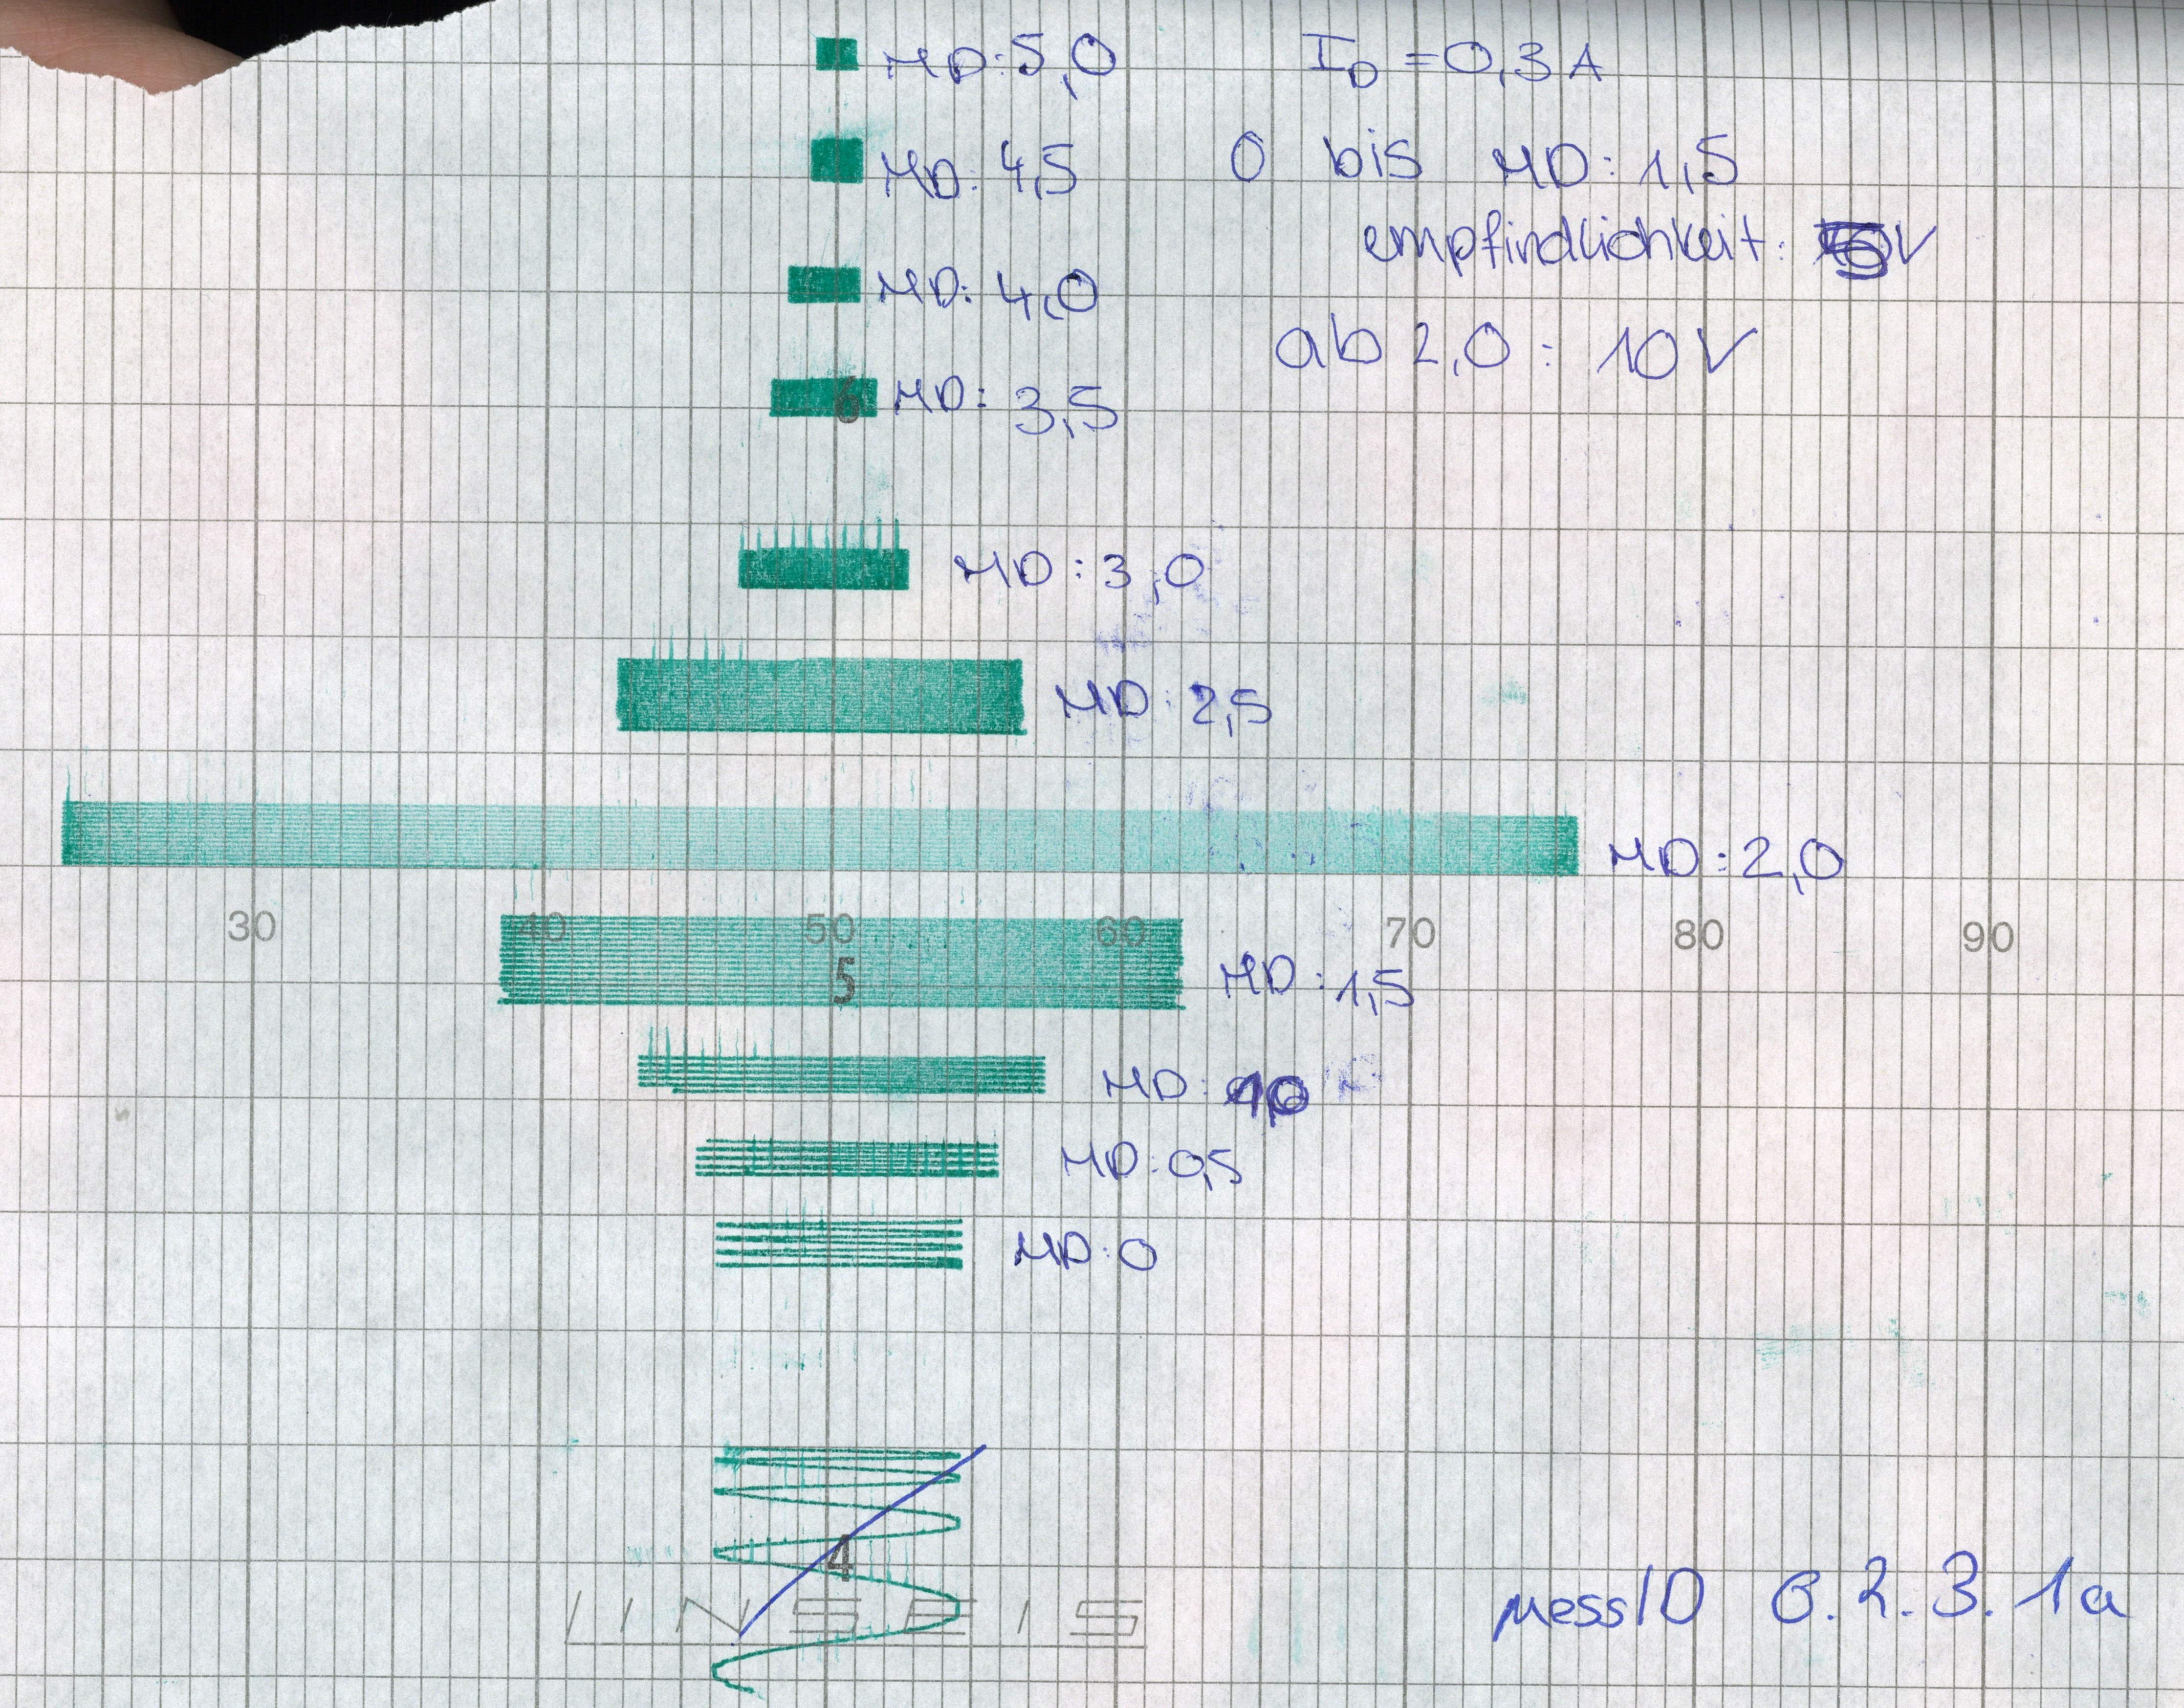 MD: 5,0
I_D = 0,3 A
MD: 4,5
0 bis MD: 1,5
empfindlichkeit: V
MD: 4,0
ab 2,0 : 10 V
6
MD: 3,5
MD: 3,0
MD: 2,5
MD: 2,0
30 40 50 60 70 80 90
5
MD: 1,5
MD:
MD: 0,5
MD: 0
4
LINSEIS
MessID 6.2.3.1a